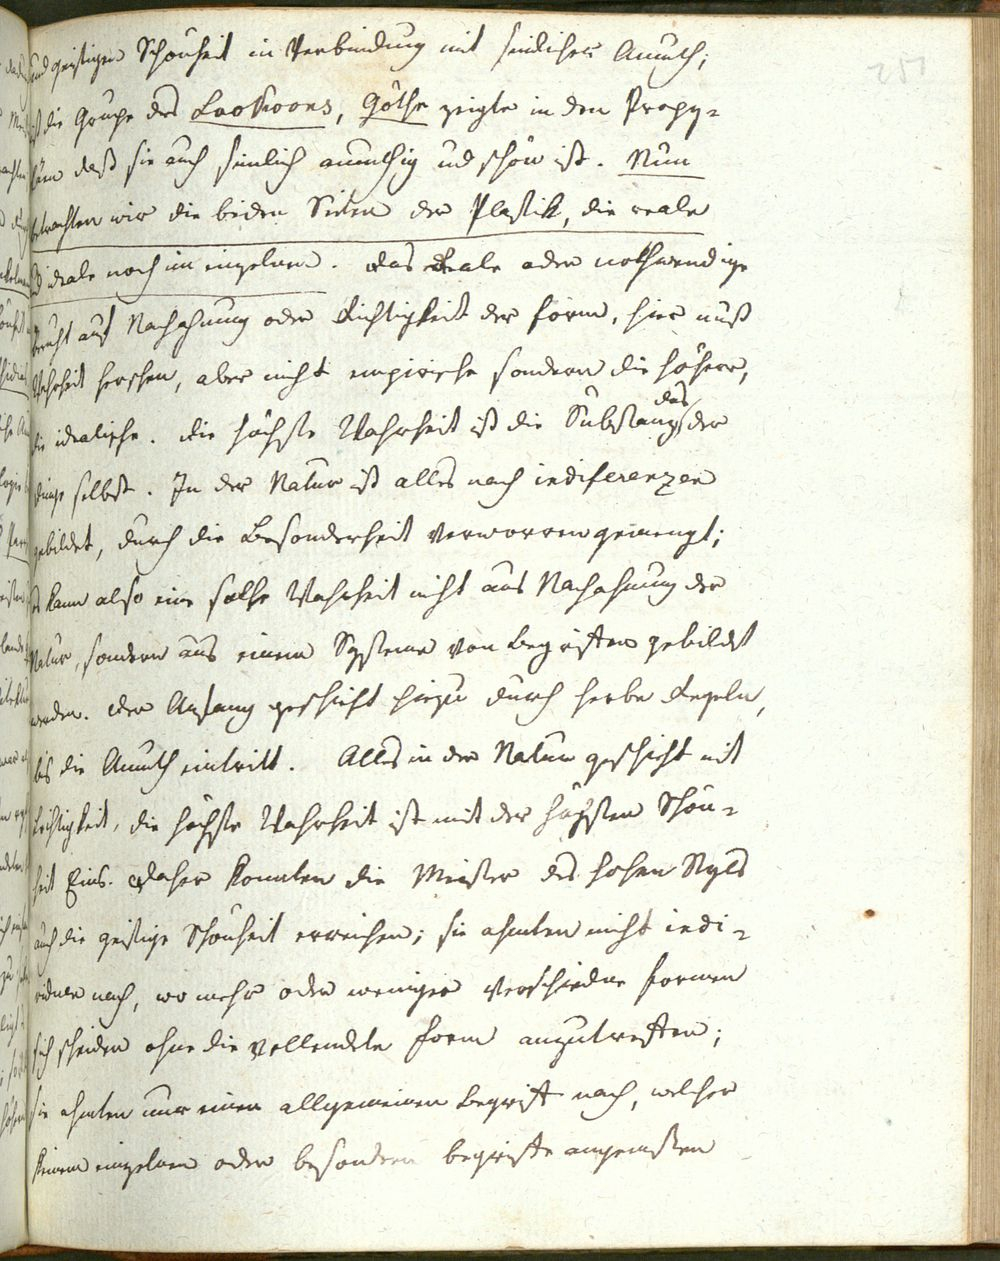 251
und geistiger Schönheit in Verbindung mit sinlicher Anmuth;
ist die Grupe des Laokoons, Göthe zeigte in den Propy-
läen daß sie auch sinlich anmuthig und schön ist. Nun
betrachten wir die beiden Seiten der Plastik, die reale
und ideale noch im einzelnen. Das Reale oder nothwendige
beruht auf Nachahmung oder Richtigkeit der Form, hier muß
Wahrheit herschen, aber nicht empirische sondern die höhere,
die idealische. Die höchste Wahrheit ist die Substanz der
Dinge selbst. In der Natur ist alles nach indiferenzen
gebildet, durch die Besonderheit verworren gemengt;
es kann also eine solche Wahrheit nicht aus Nachahmung der
Natur, sondern aus einem Systeme von Begriffen gebildet
werden. Der Anfang geschieht hiezu durch herbe Regeln,
bis die Anmuth eintritt. Alles in der Natur geschieht mit
Leichtigkeit, die höchste Wahrheit ist mit der höchsten Schön-
heit Eins. Daher konnten die Meister des hohen Styls
auch die geistige Schönheit erreichen; sie ahmten nicht indi-
viduen nach, wo mehr oder weniger verschiedne Formen
sich scheiden ohne die vollendete Form anzutreffen;
sie ahmten nur einen allgemeinen Begriff nach, welcher
keinem einzelnen oder besondern begriffe angemeßen